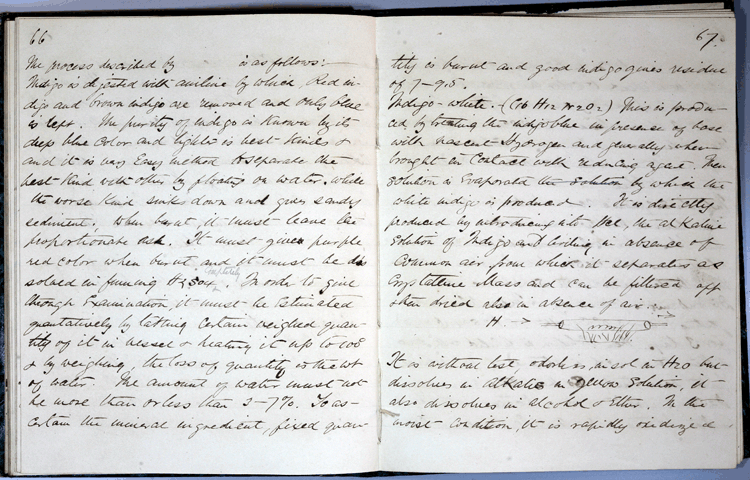 66
The process described by is as follows:—
Indigo is digested with aniline by which Red in-
digo and brown indigo are removed and only blue
is left. The purity of Indigo is known by its
deep blue color and light is best kinds &
and it is very Easy method to separate the
best kind with other by floating on water, while
the worse kind sink down and gives sandy
sediment. When burnt, it must leave the
proportionate ash. It must gives purple
red color when burnt and it must be dis
solved in fuming H2SO4 completely. In order to give
through Examination it must be estimated
quantatively by letting certain weighed quan-
tity of it in vessel & heating it up to 100
& by weighing the loss of quantity is the wt
of water. The amount of water must not
be more than or less than 3-7%. To as-
certain the mineral ingredient, fixed quan-
67
tity is burnt and good indigo gives residue
of 7–9.5.
Indigo-white.-(C16 H12 N2O2) This is produ-
ced by treating the indigo blue in presence of base
with nascent Hydrogen and generally when
brought in contact with reducing agent. Then
solution is Evaporated the solution by which the
white indigo is produced. It is directly
produced by introducing into Hcl, the alkaline
Solution of Indigo and boiling in absence of
Common air, from which it separates as
Crystalline Mass and can be filtered off
then dried also in absence of air.
H →
It is without test, odorless, insol in H2O but
dissolves in alkalie in yellow solution, it
also dissolves in alcohol & Ether. In the
moist condition, it is rapidly oxidized